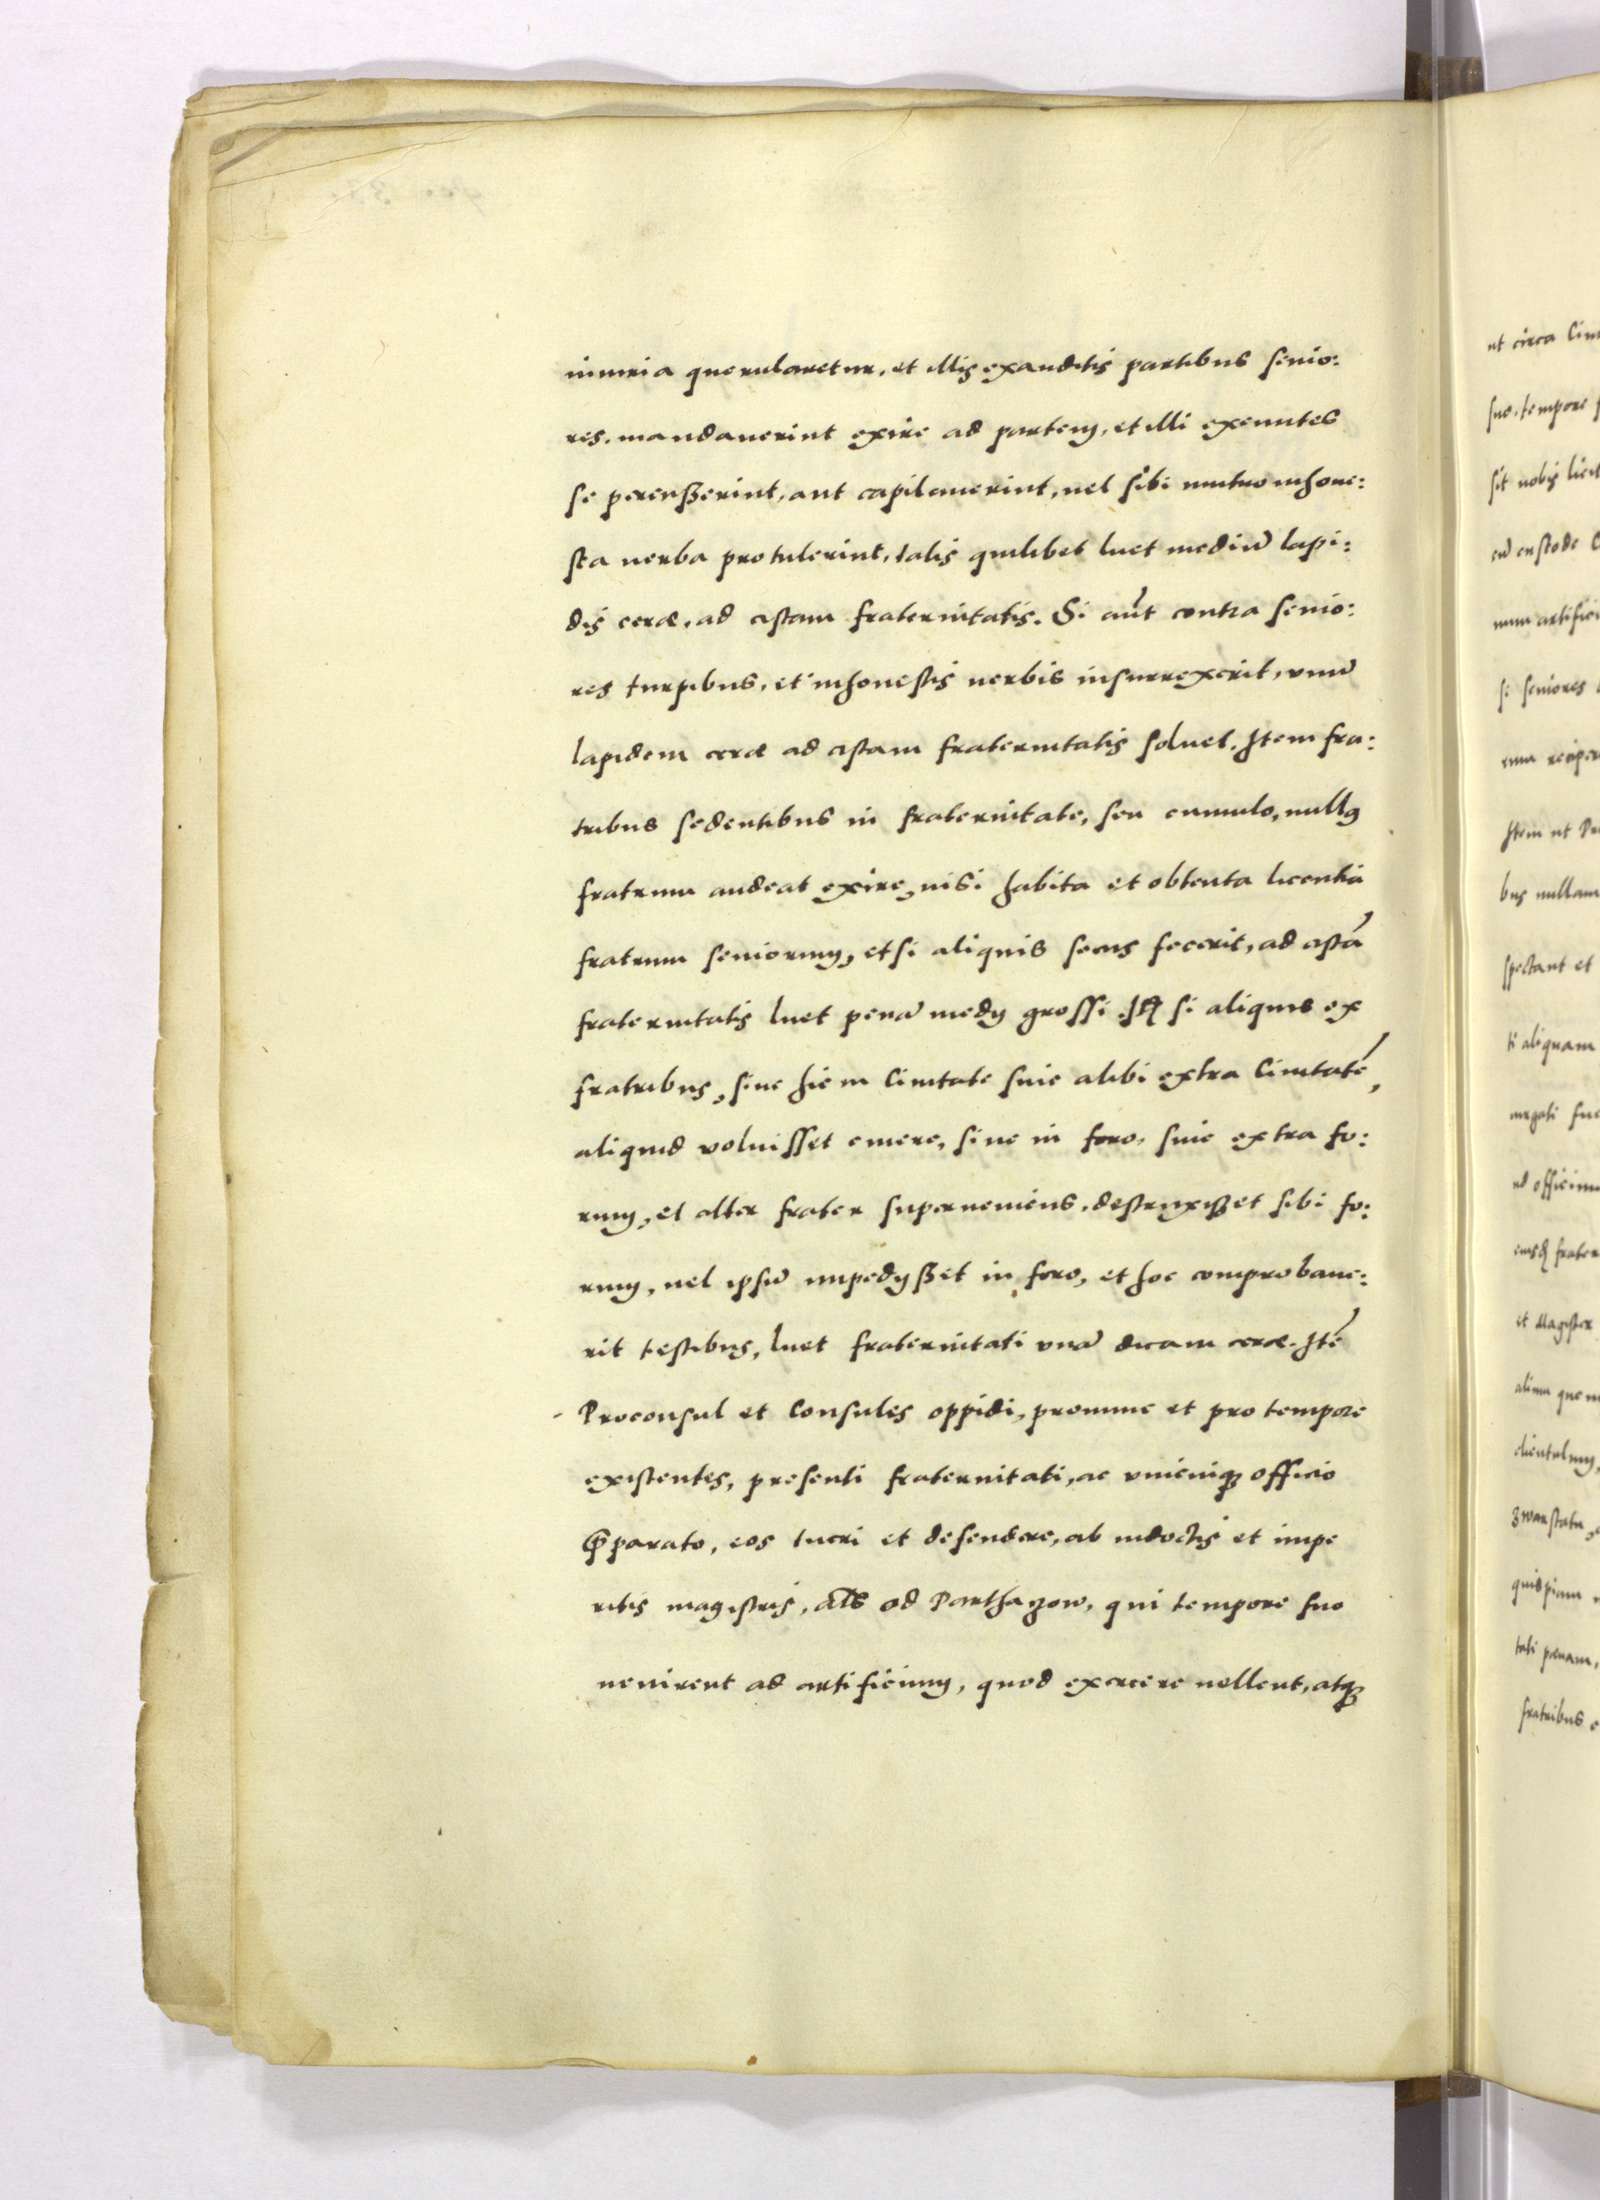 iniuria querularetur, et illis exauditis partibus senio:
res, mandauerint exire ad partem, et illi exeuntes
se percusserint, aut capilauerint, uel sibi mutuo inhone:
sta uerba protulerint, talis quilibet luet mediū lapi:
dis ceræ, ad cistam fraternitatis. Si aūt contra senio:
res turpibus, et inhonestis uerbis insurrexerit, vnū
lapidem ceræ ad cistam fraternitatis soluet. Item fra:
tribus sedentibus in fraternitate, seu cumulo, nullꝯ
fratrum audeat exire, nisi habita et obtenta licentia
fratrum seniorum, et si aliquis secus fecerit, ad cistā
fraternitatis luet penā medij grossi. Itē si aliquis ex
fratribus, siue hic in Ciuitate siue alibi extra Ciuitatē,
aliquid voluisset emere, siue in foro, siue extra fo:
rum, et alter frater superueniens, destruxisset sibi fo:
rum, uel ipsū impedijsset in foro, et hoc comprobaue:
rit testibus, luet fraternitati vnā dicam ceræ. Itē
Proconsul et Consules oppidi, pronunc et pro tempore
existentes, presenti fraternitati, ac vnicuiqꝫ officio
p̄parato, eos tueri et defendere, ab indoctis et impe
ritis magistris, al̄s od Parthazow, qui tempore suo
uenirent ad artificium, quod exercere uellent, atqꝫ
ut circa
suo tempore
sit nobis
cū custode
num
si seniores
Item ut
bus nullam
spectant et
ti aliquam
ad
et Magister
quispiam
fratribus